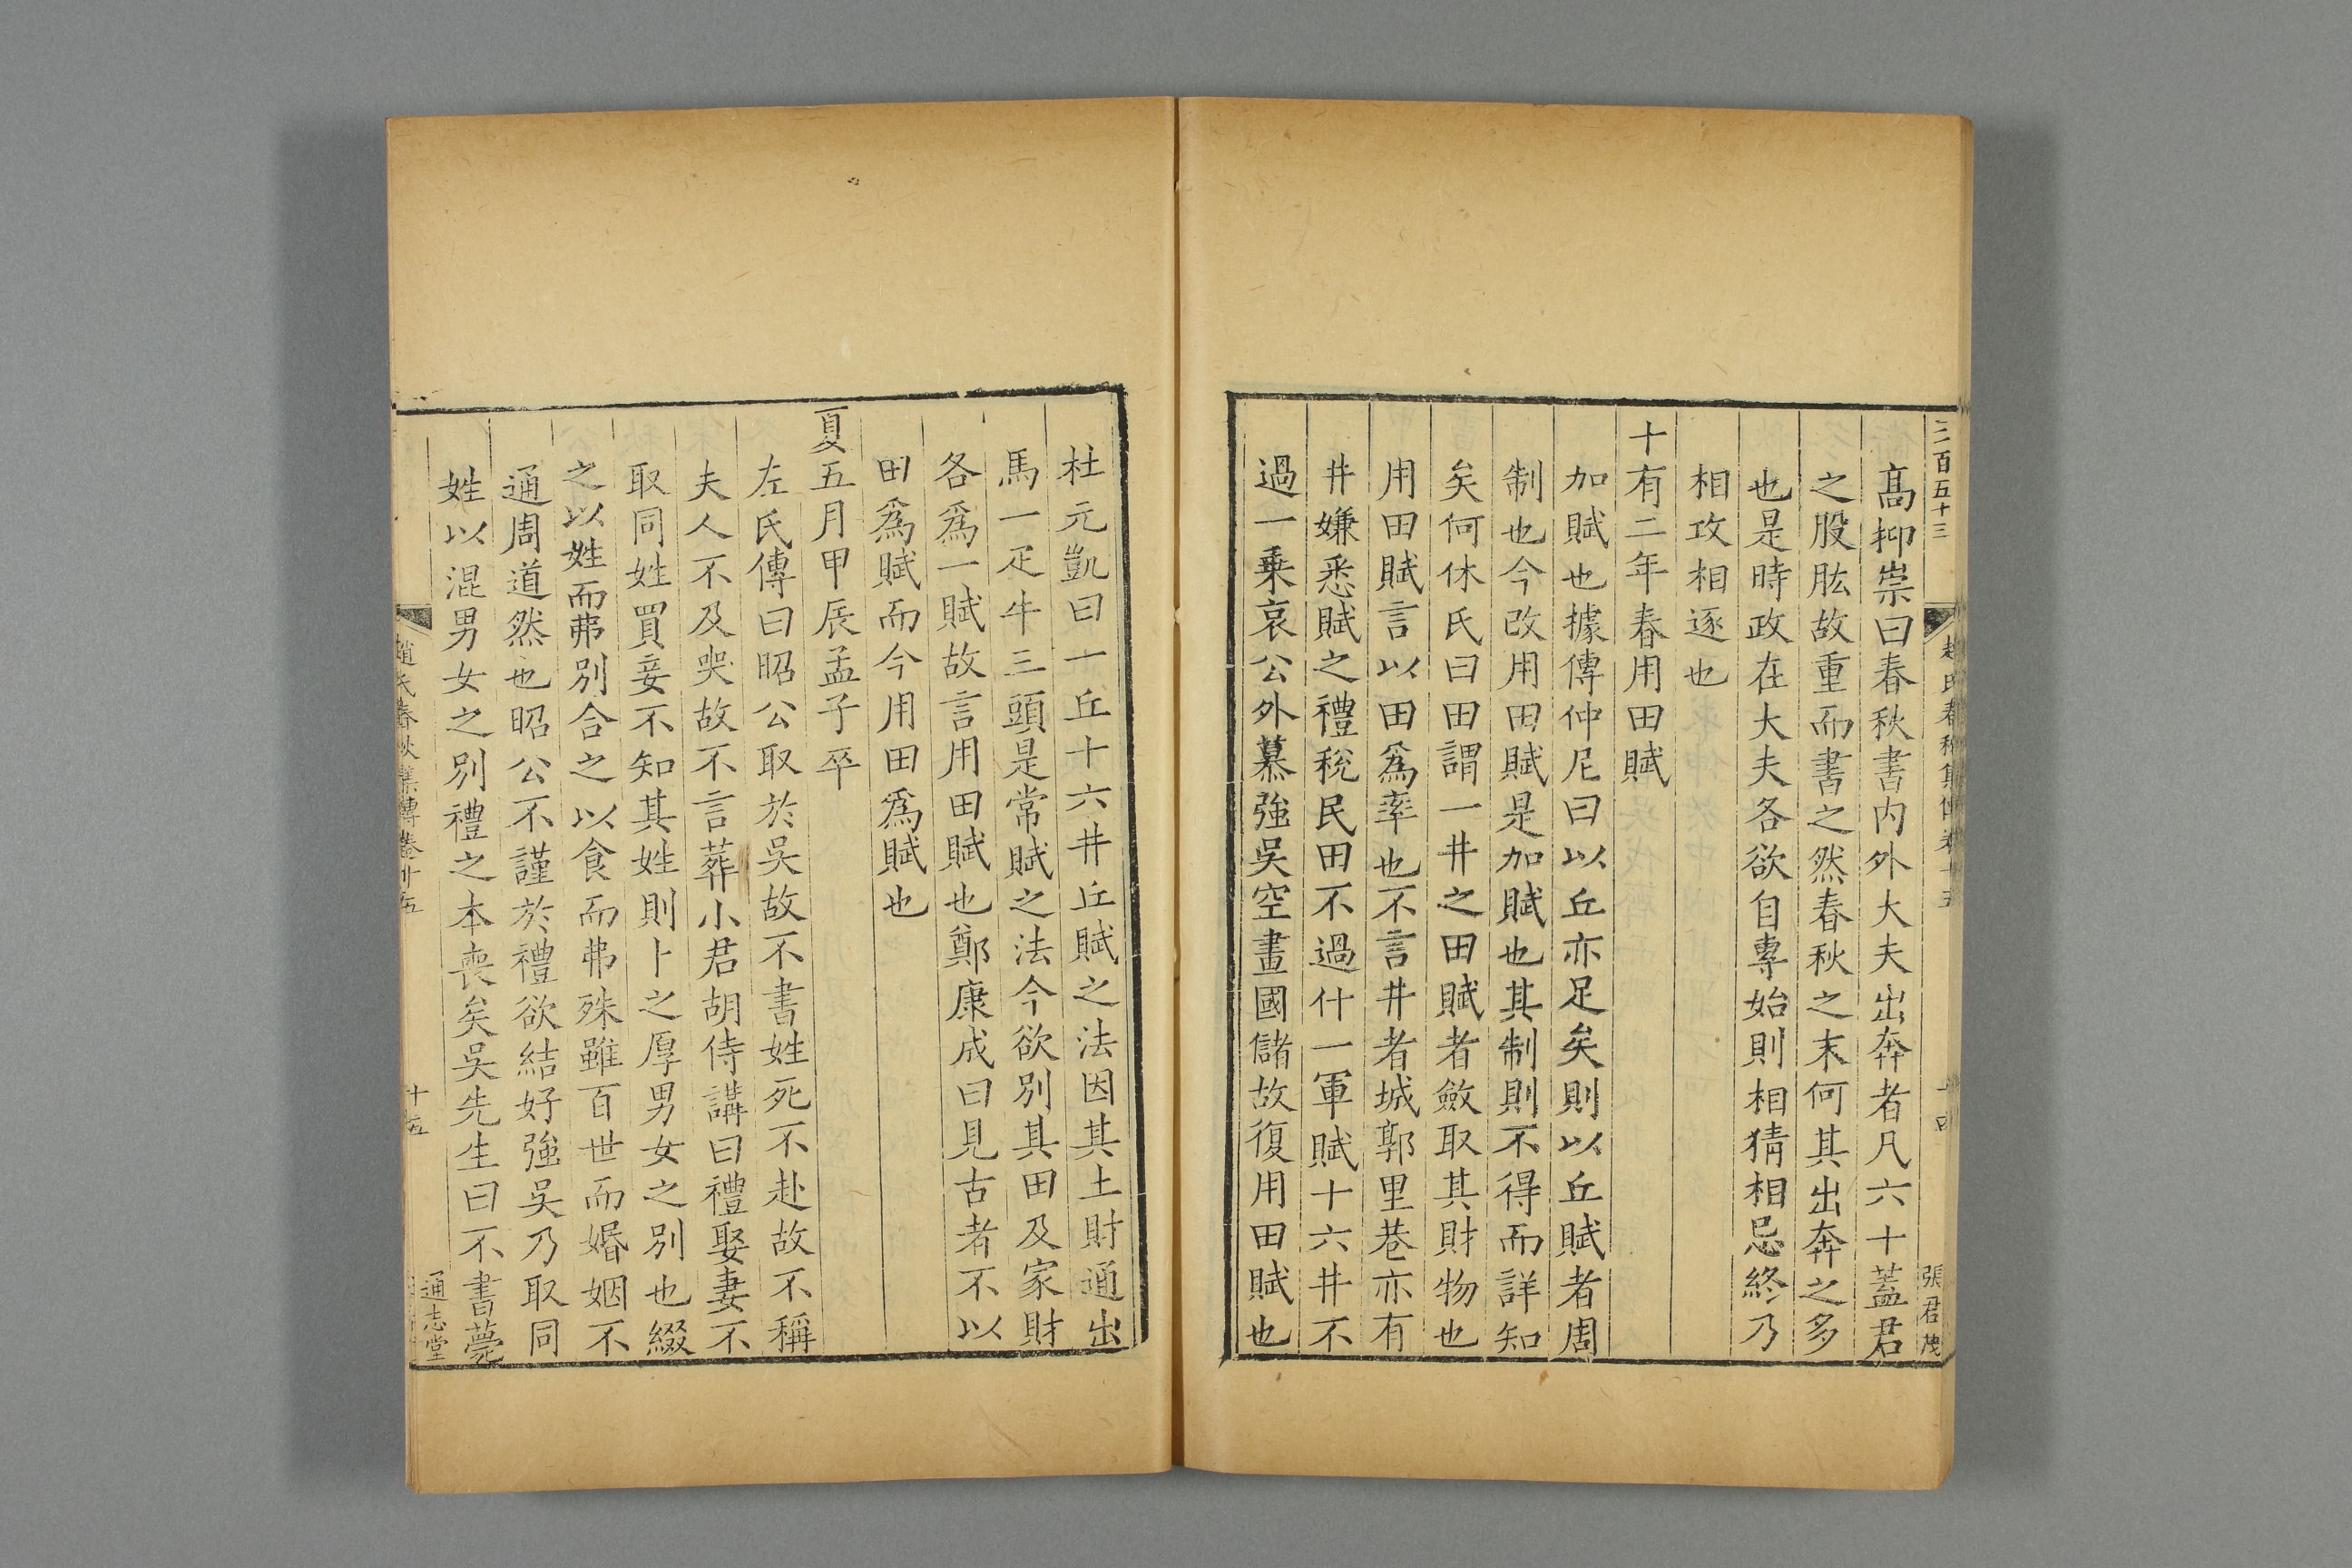 三百五十三
趙氏春秋集傳卷十五
十四
張君茂
高抑崇曰春秋書内外大夫出奔者凡六十蓋君
之股肱故重而書之然春秋之末何其出奔之多
也是時政在大夫各欲自專始則相猜相忌終乃
相攻相逐也
十有二年春用田賦
加賦也據傳仲尼曰以丘亦足矣則以丘賦者周
制也今改用田賦是加賦也其制則不得而詳知
矣何休氏曰田謂一井之田賦者斂取其財物也
用田賦言以田爲率也不言井者城郭里巷亦有
井嫌悉賦之禮稅民田不過什一軍賦十六井不
過一乗哀公外慕強吳空畫國儲故復用田賦也
杜元凱曰一丘十六井丘賦之法因其土財通出
馬一疋牛三頭是常賦之法今欲別其田及家財
各爲一賦故言用田賦也鄭康成曰見古者不以
田爲賦而今用田爲賦也
夏五月甲辰孟子卒
左氏傳曰昭公取於吳故不書姓死不赴故不稱
夫人不及哭故不言葬小君胡侍講曰禮娶妻不
取同姓買妾不知其姓則卜之厚男女之別也綴
之以姓而弗別合之以食而弗殊雖百世而婚姻不
通周道然也昭公不謹於禮欲結好強吳乃取同
姓以混男女之別禮之本喪矣吳先生曰不書薨
趙氏春秋集傳卷十五
十五
通志堂